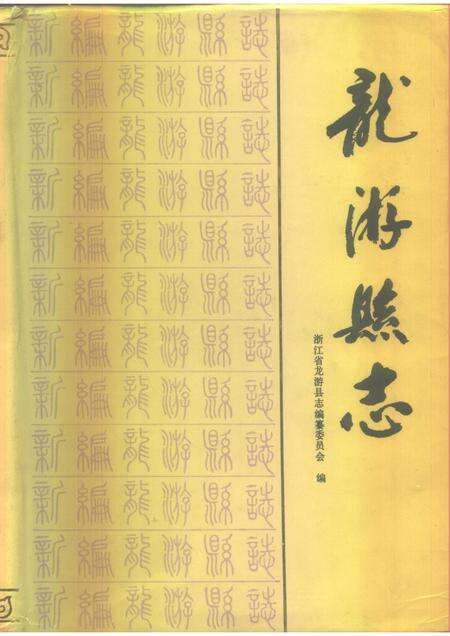 龍游縣志
浙江省龙游县志编纂委员会 编
新編龍游縣誌
新編龍游縣誌
新編龍游縣誌
新編龍游縣誌
新編龍游縣誌
新編龍游縣誌
新編龍游縣誌
新編龍游縣誌
新編龍游縣誌
新編龍游縣誌
新編龍游縣誌
新編龍游縣誌